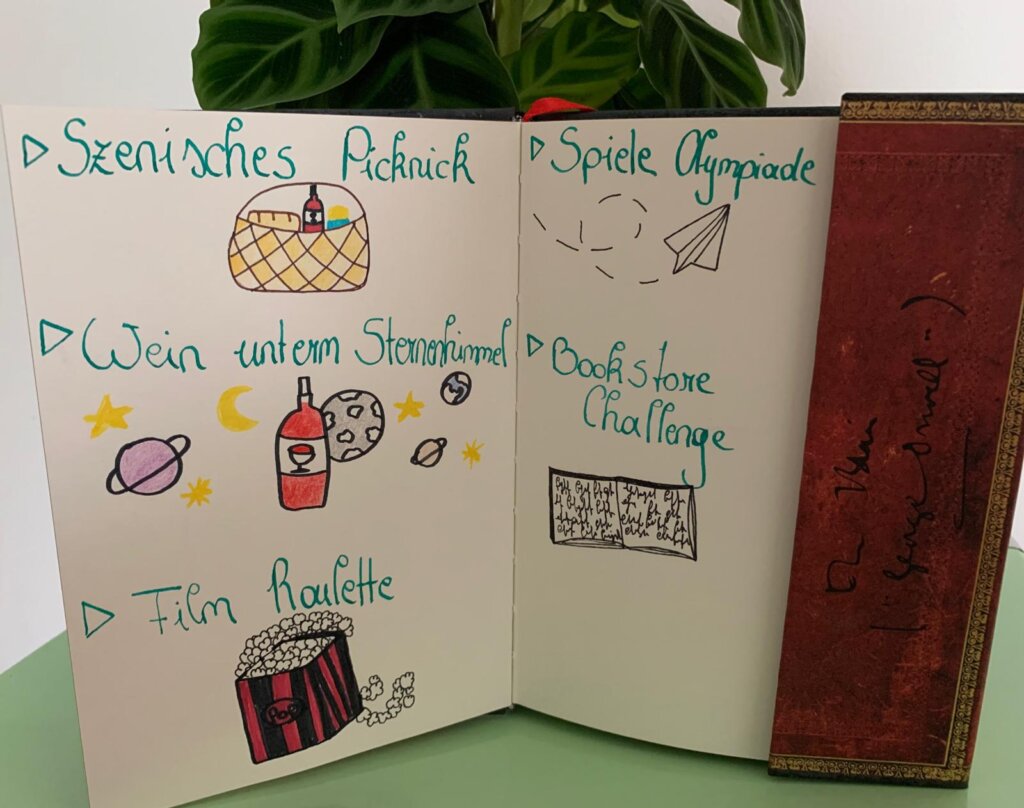 Szenisches Picknick
Wein unterm Sternenhimmel
Film Roulette
Spiele Olympiade
Bookstore
Challenge
George Orwell